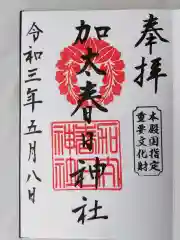 奉拝
本殿国指定
重要文化財
加太春日神社
令和三年五月八日